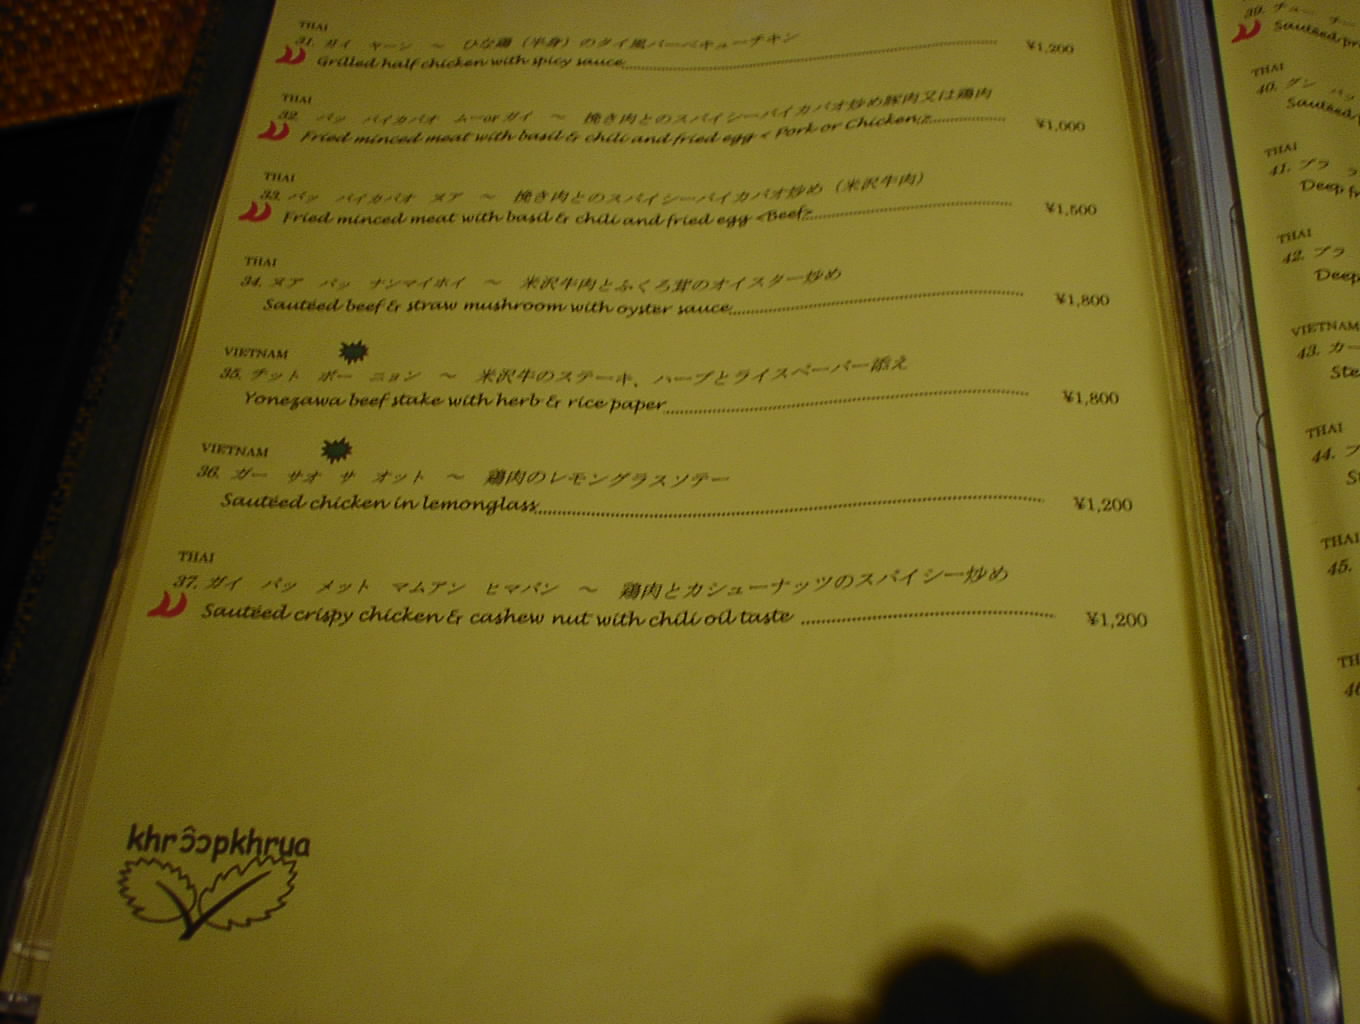 THAI
31. ガイ ヤーン ～ ひな鶏（半身）のタイ風バーベキューチキン
Grilled half chicken with spicy sauce ¥1,200
THAI
32. パッ バイカパオ ムーorガイ ～ 挽き肉とのスパイシーバイカパオ炒め豚肉又は鶏肉
Fried minced meat with basil & chili and fried egg < Pork or Chicken > ¥1,000
THAI
33. パッ バイカパオ ヌア ～ 挽き肉とのスパイシーバイカパオ炒め（米沢牛肉）
Fried minced meat with basil & chili and fried egg <Beef> ¥1,500
THAI
34. ヌア パッ ナンマイホイ ～ 米沢牛肉とふくろ茸のオイスター炒め
Sautéed beef & straw mushroom with oyster sauce ¥1,800
VIETNAM
35. チット ボー ニョン ～ 米沢牛のステーキ、ハーブとライスペーパー添え
Yonezawa beef stake with herb & rice paper ¥1,800
VIETNAM
36. ガー サオ サ オット ～ 鶏肉のレモングラスソテー
Sautéed chicken in lemonglass ¥1,200
THAI
37. ガイ パッ メット マムアン ヒマパン ～ 鶏肉とカシューナッツのスパイシー炒め
Sautéed crispy chicken & cashew nut with chili oil taste ¥1,200
khrɔ̂ɔpkhrua
39. チュー チー
Sautéed
THAI
40. グン パッ
Sautéed
THAI
41. プラ
Deep
THAI
42. プラ
Deep
VIETNAM
43. カー
THAI
44.
THAI
45.